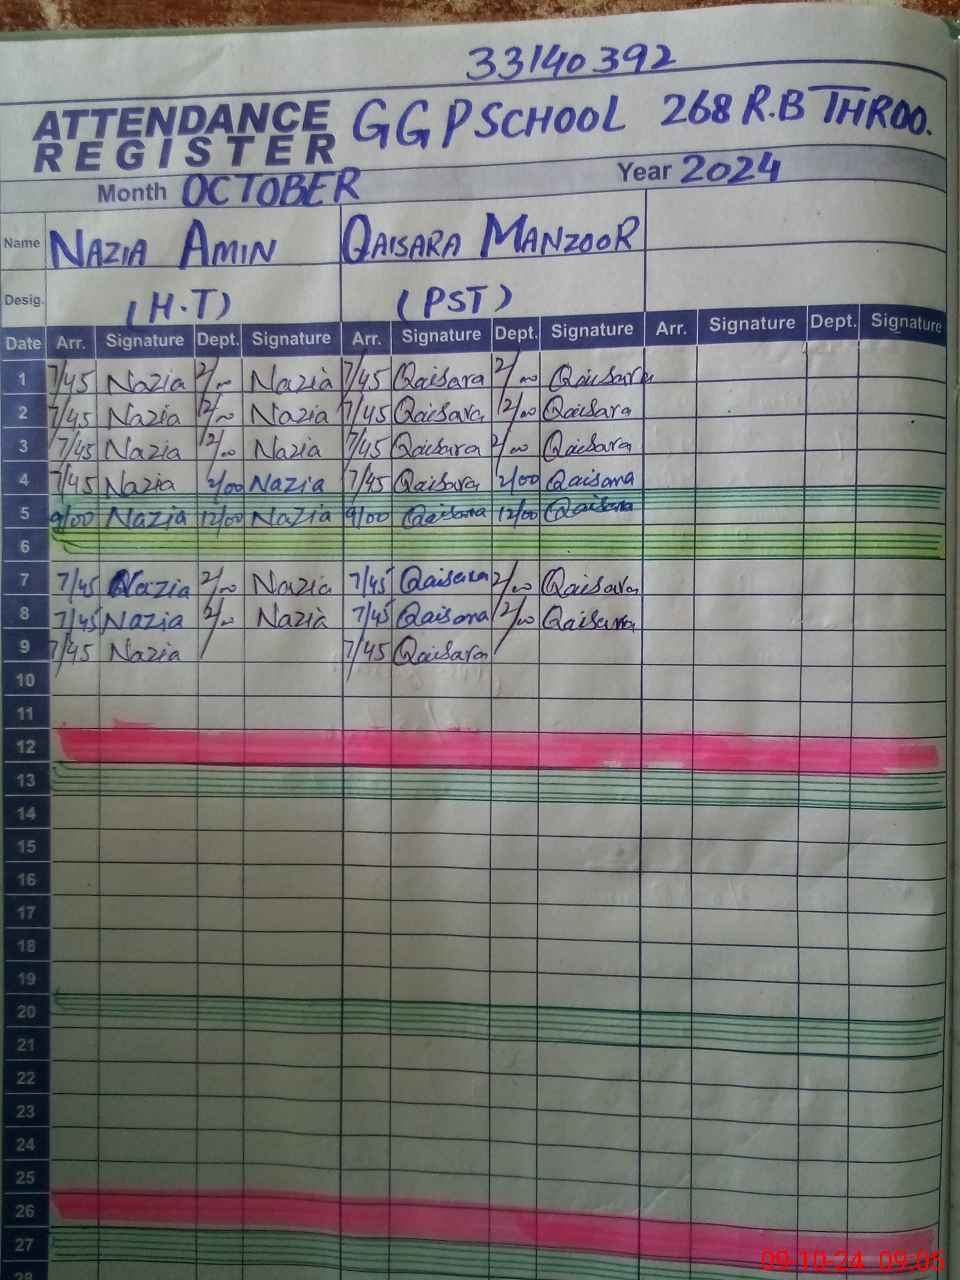 33140392
ATTENDANCE REGISTER GGPSCHOOL 268 R.B THROO.
Month OCTOBER Year 2024
Name NAZIA AMIN QAISARA MANZOOR
Desig. (H.T) (PST)
Date Arr. Signature Dept. Signature Arr. Signature Dept. Signature Arr. Signature Dept. Signature
1 7/45 Nazia 2/00 Nazia 7/45 Qaisara 2/00 Qaisara
2 7/45 Nazia 12/00 Nazia 7/45 Qaisara 12/00 Qaisara
3 7/45 Nazia 12/00 Nazia 7/45 Qaisara 2/00 Qaisara
4 7/45 Nazia 2/00 Nazia 7/45 Qaisara 2/00 Qaisara
5 9/00 Nazia 12/00 Nazia 9/00 Qaisara 12/00 Qaisara
6
7 7/45 Nazia 2/00 Nazia 7/45 Qaisara 2/00 Qaisara
8 7/45 Nazia 2/00 Nazia 7/45 Qaisara 2/00 Qaisara
9 7/45 Nazia / 7/45 Qaisara /
10
11
12
13
14
15
16
17
18
19
20
21
22
23
24
25
26
27
28
09-10-24 09:05